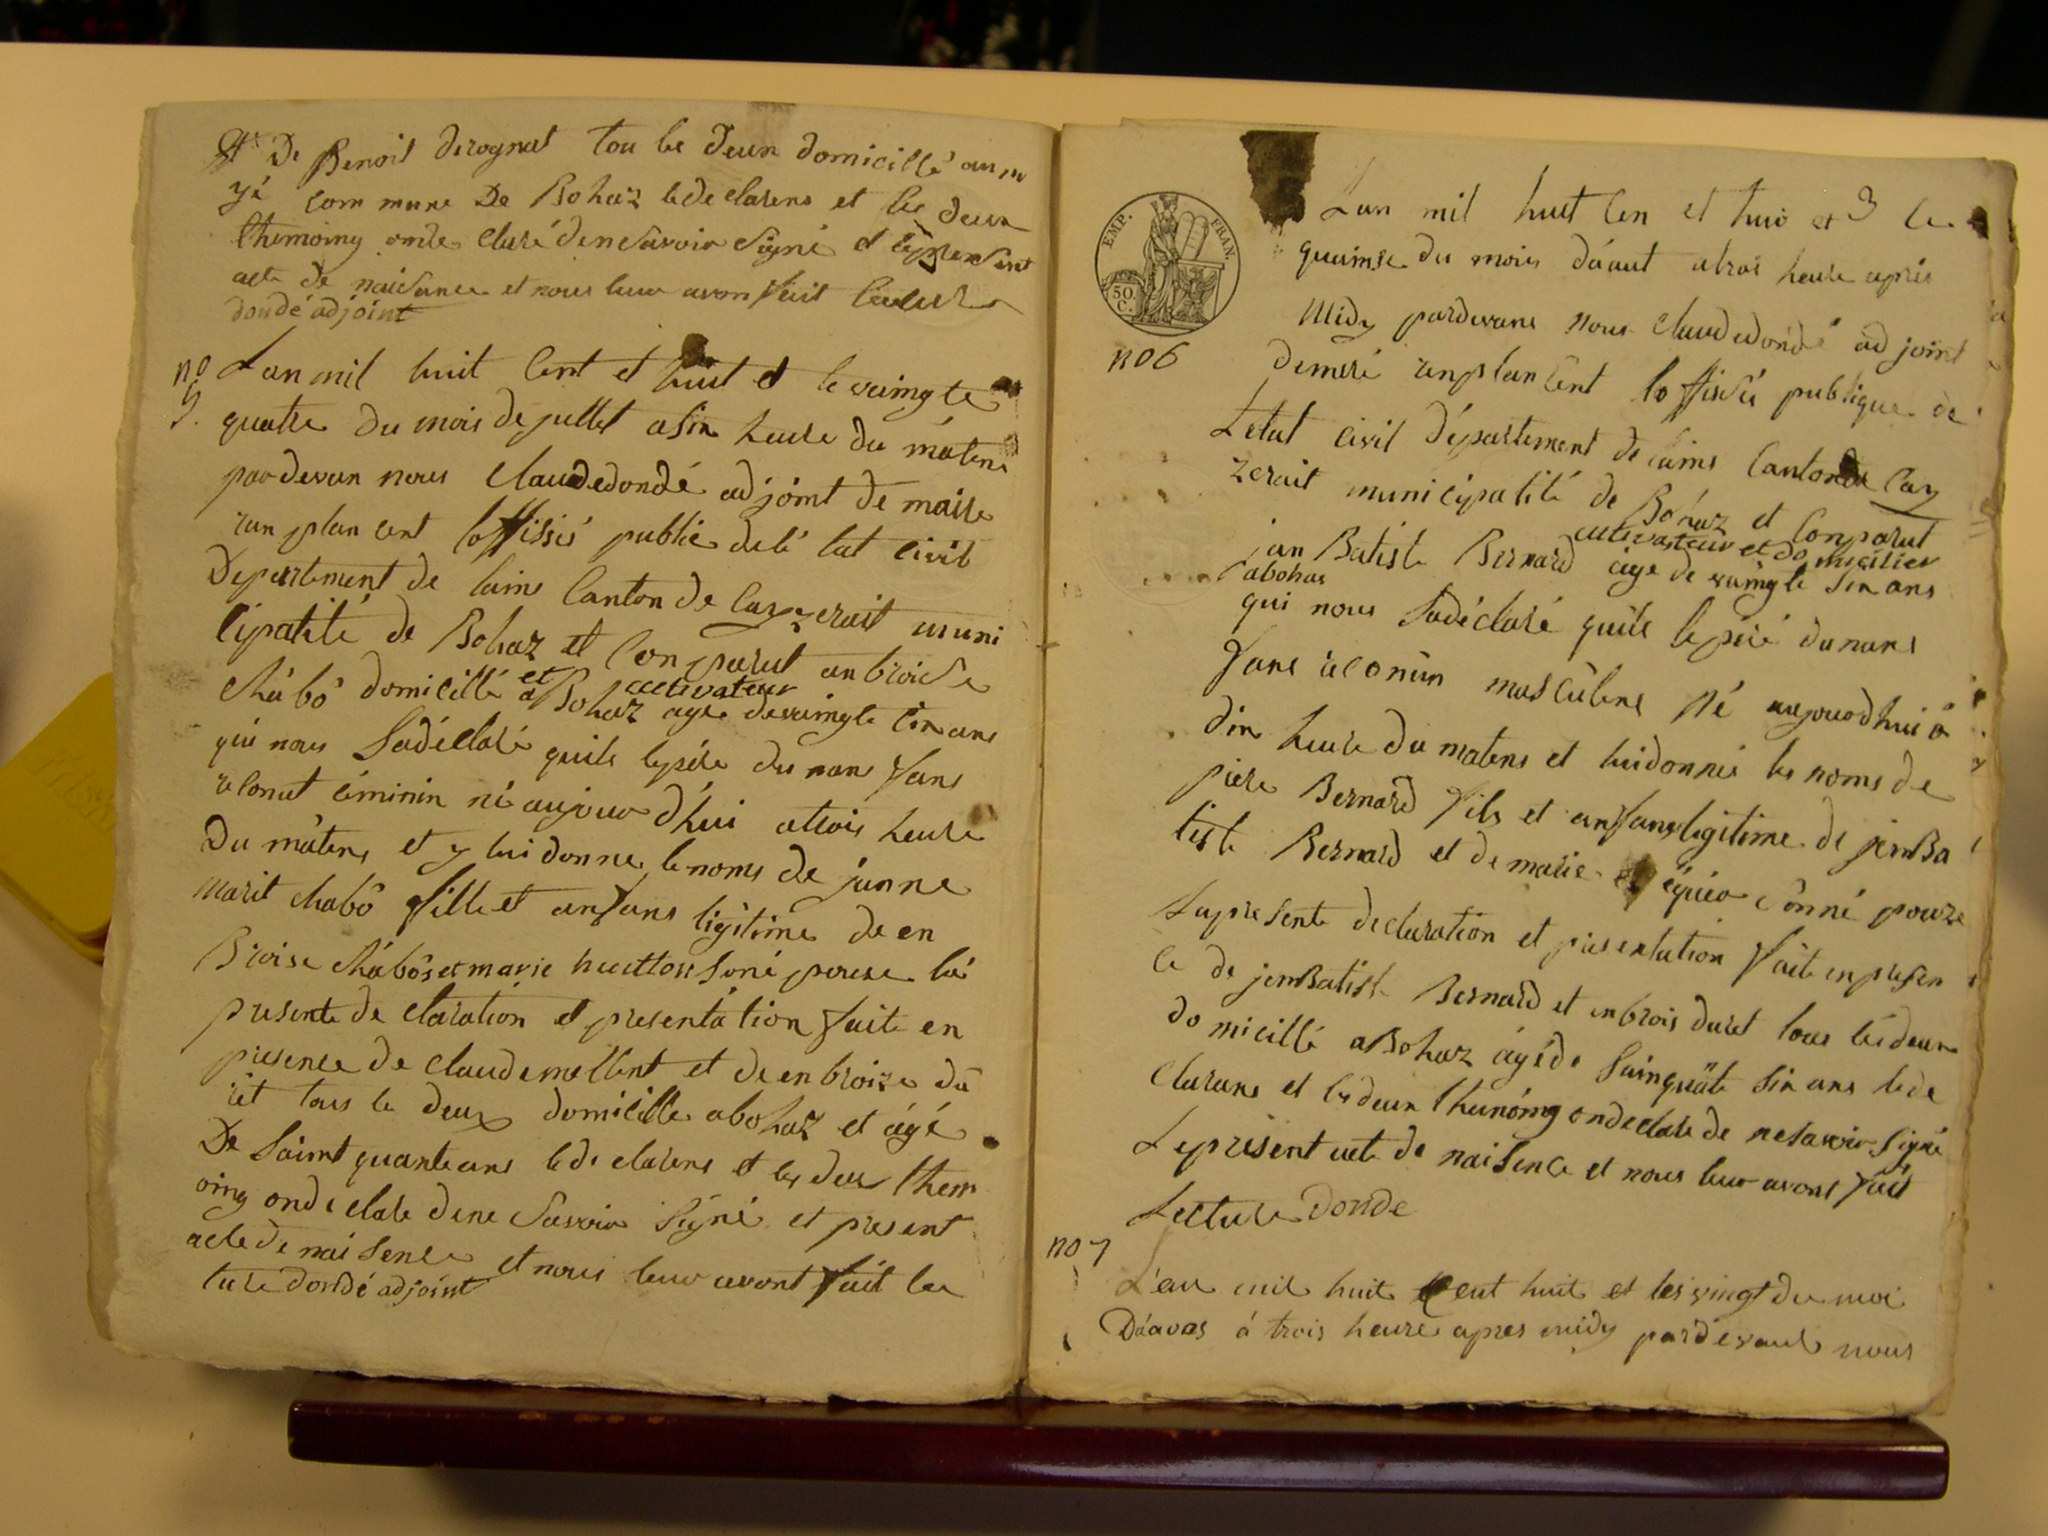 De Benoit derognat tou le deux domicillé au m
yé commune De Bohaz le de clarens et les deux
themoing onde claré de ne savoir signé et le presens
acte de naisance et nous leur avon fait lecture
dondé adjoint
no 5. Lan mil huit Cent et huit et le vaingte
quatre du mois de jullet a six heure du mátens
par devan nous Claude dondé adjoint de maire
ranplan cent loffissié public de lé tat civil
Departement de lains Canton de Cayzeraít muni
cipatité de Bohaz et Conparut anbroise
chábô domicillé a Bohaz et cultivateur agée de vaingte cin ans
qui nous sadéclaré quils le pére du nans fans
reconut féminin né aujour d'hui a trois heure
Du mâtens et y lui donne le noms de janne
marit chabô fille et anfans ligitime de en
Broise chábôs et marie huitton soné pouse lá
presente de claration et presentátion faite en
presence de claude mellent et de enbroize du
ret tous le deux domicille a bohaz et ágé
De saint quante ans le de clarens et les deux them
oing onde clare de ne savoir signé et present
acte de naisence et nous leur avont fait lec
ture dondé adjoint
EMP. FRAN.
50 C.
no 6
Lan mil huit Cen et huis et le
quainse du mois dáaut a trois heure aprés
Midy pardevans nous Claude dondé adjoint
de meré ranplan cent loffissié publique de
Letat civil département de lains Canton de Cay
zerait municipatité de Bohaz et Conparut
jan Batiste Bernard cultivateur et domicilier age de vaingte six ans
abohas
qui nous sadéclaré quils le péré du nans
fans reconún masculens Né aujourdhui á
dix heure du matens et lui donnée les noms de
piere Bernard fils et anfans legitime de jenBa
tiste Bernard et de marie séguéo sonné pouze
La presente declaration et presentation fait en presen
ce de jenBatist Bernard et enbrois duret tous les deux
domicillé a Bohaz ágé de sainquäte six ans le de
Clarans et les deux themóing on declare de ne savoir signé
Le present acte de naisence et nous leur avont fait
Lecture Dondé
no 7
L'an mil huit cent huit et les vingt du moi
Dáavas á trois heure apres midy pardevant nous